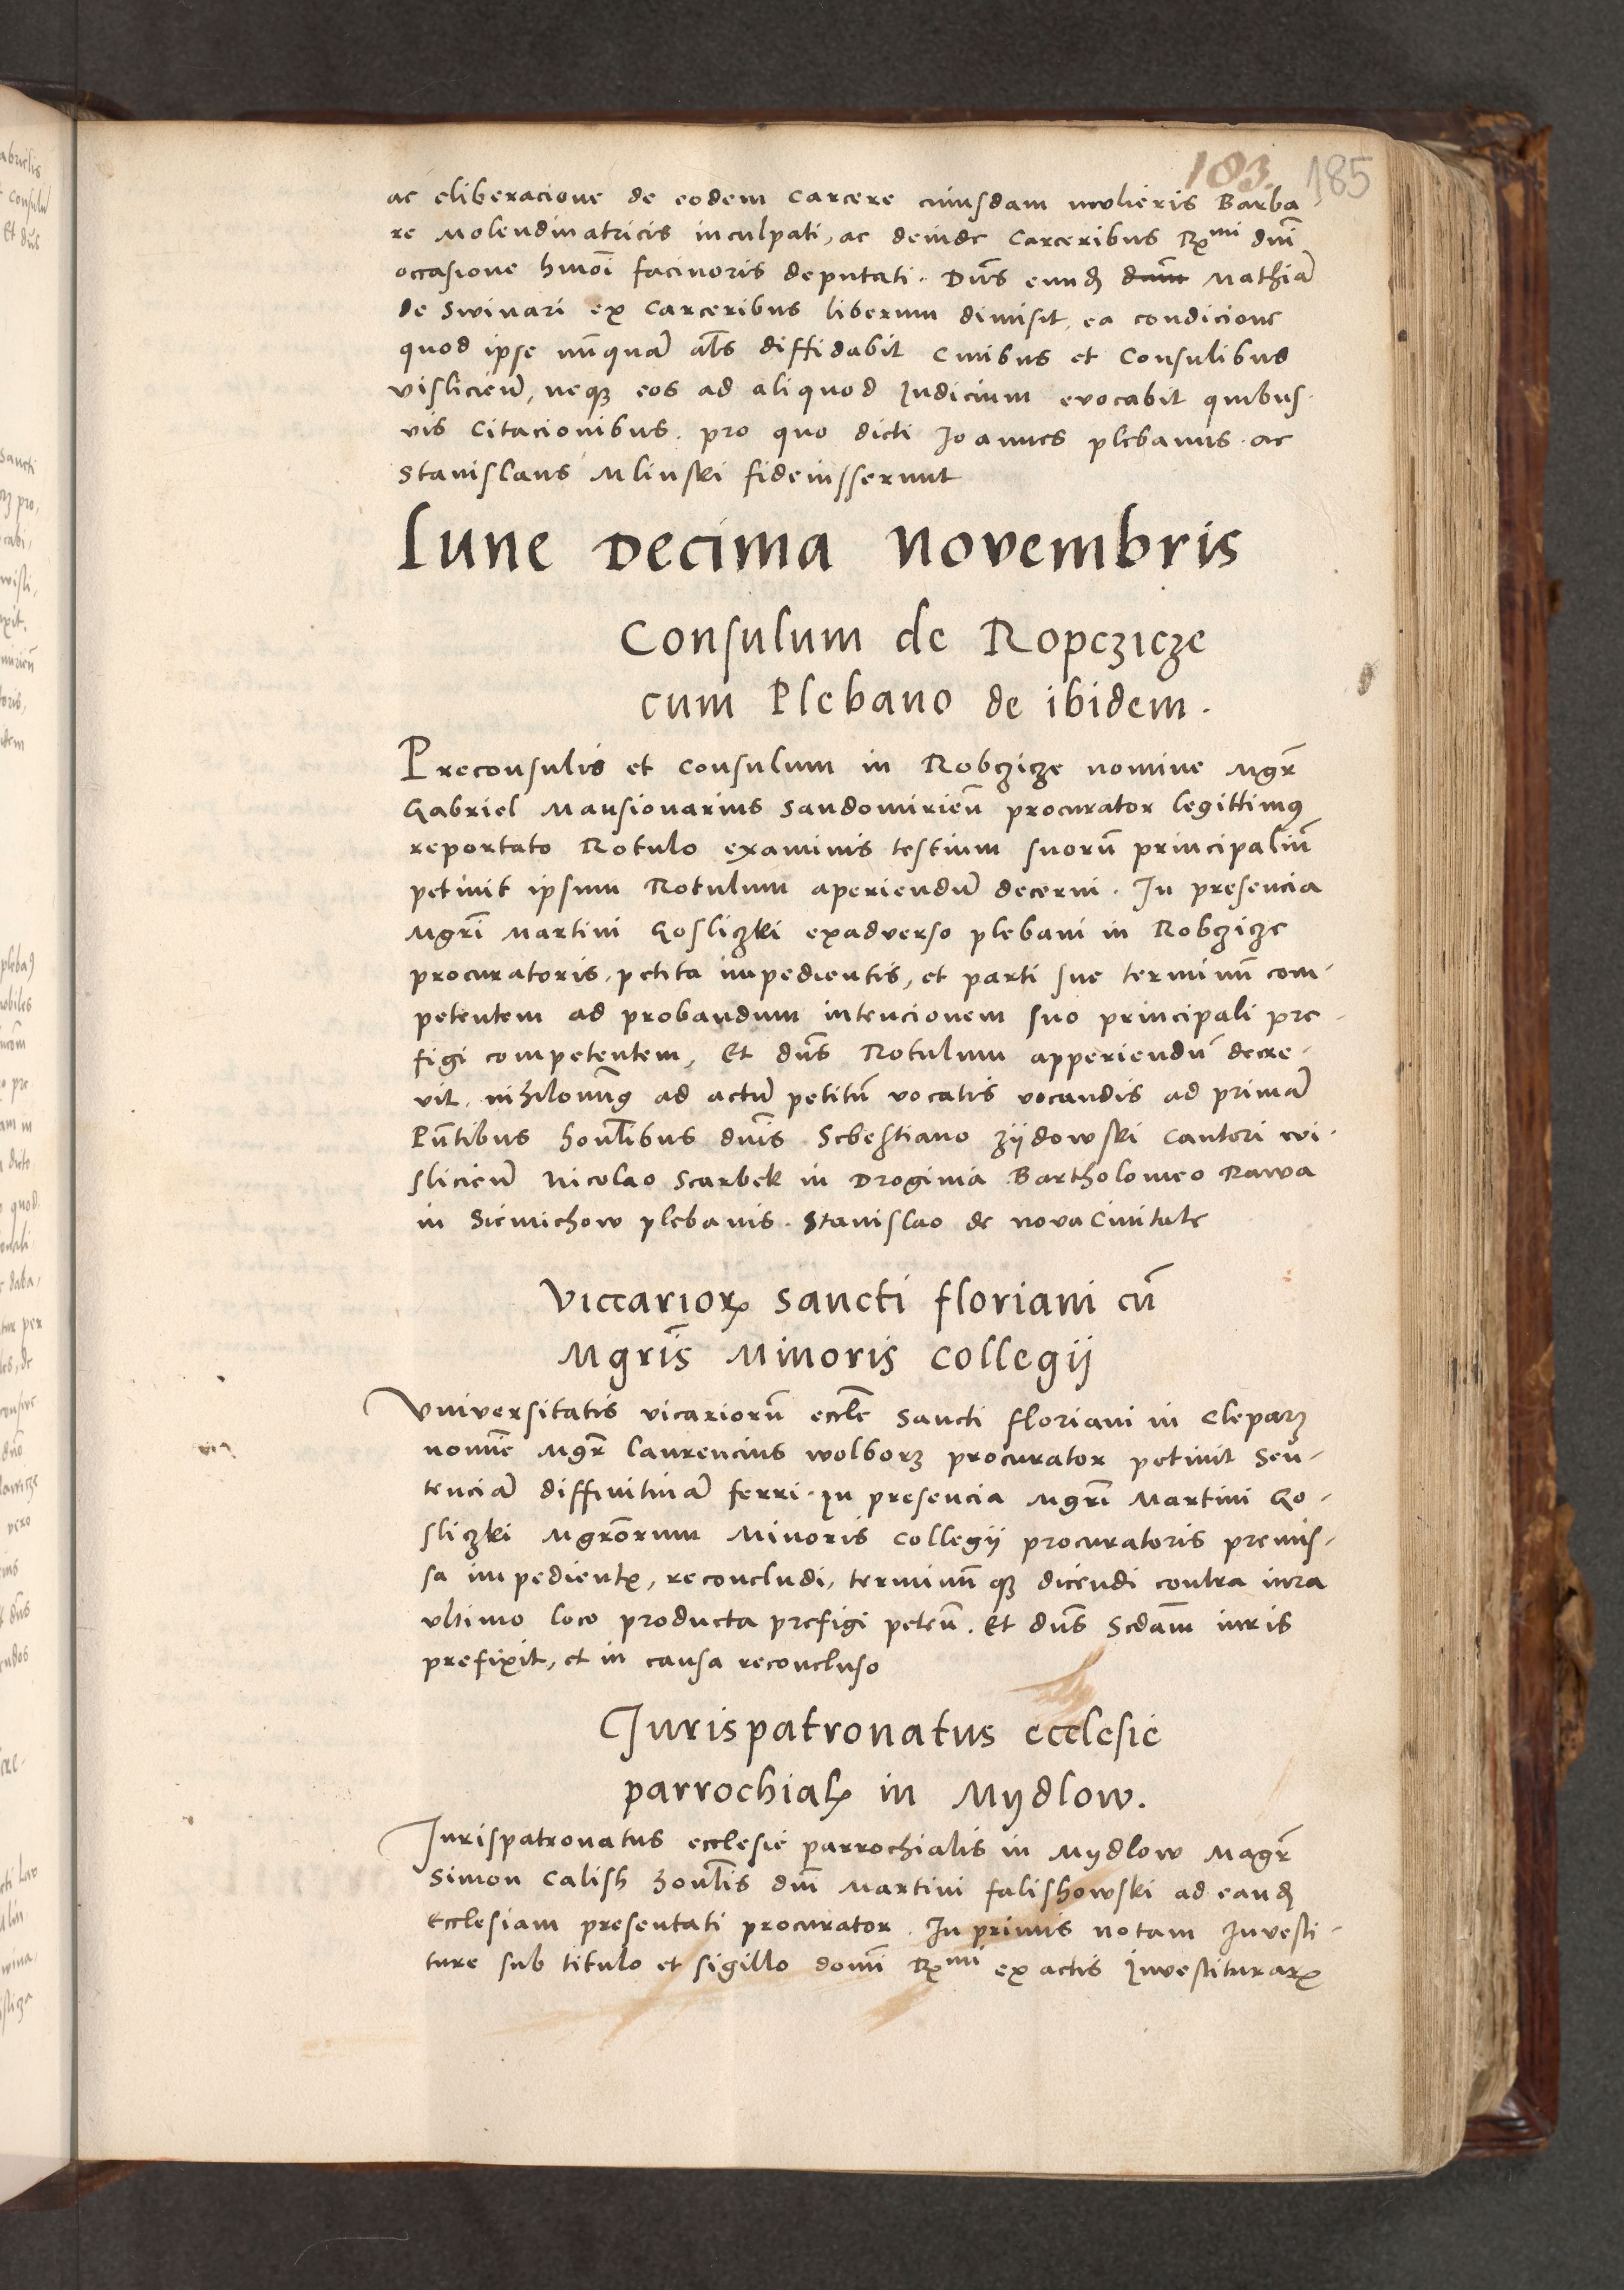 183. 185
ac eliberacione de eodem carcere cuiusdam mulieris Barba
re Molendinatricis inculpati, ac deinde Carceribus Rmi dni
occasione hmoi facinoris deputati. Dns eund dnm Mathia
de Swinari ex Carceribus liberum dimisit, ea condicione
quod ipse nunqua als diffidabit Civibus et Consulibus
vislicien, neque eos ad aliquod Iudicium evocabit quibus-
vis Citacionibus. pro quo dicti Ioannes plebanus ac
Stanislaus Mlinski fideiusserunt
Lune Decima Novembris
Consulum de Ropcziçze
cum Plebano de ibidem.
Preconsulis et consulum in Robcziçze nomine Mgr
Gabriel Mansionarius Sandomirien procurator legittimus
reportato Rotulo examinis testium suoru principaliu
petivit ipsum Rotulum aperiendu decerni. In presencia
Mgri Martini Gosliczki exadverso plebani in Robcziçze
procuratoris, petita impedientis, et parti sue terminu com-
petentem ad probandum intencionem suo principali pre-
figi competentem, Et dns Rotulum apperiendu decre-
vit. nihilominus ad actu petitu vocatis vocandis ad prima
Pntibus honlibus dnis Sebestiano zijdowski Cantori wi-
slicien Nicolao Scarbek in Droginia Bartholomeo Rawa
in Siemichow plebanis. Stanislao de nova Civitate
Viccariorum Sancti floriani cu
Mgris Minoris Collegij
Universitatis vicarioru eccle Sancti floriani in Cleparz
nomine Mgr laurencius wolborz procurator petivit Sen-
tencia diffinitiva ferri. In presencia Mgri Martini Go-
sliczki Mgrorum Minoris Collegij procuratoris premis-
sa impedientis, reconcludi, terminu que dicendi contra iura
ultimo loco producta prefigi peten. Et dns Scdam iuris
prefixit, et in causa reconcluso
Jurispatronatus ecclesie
parrochialis in Mydlow.
Jurispatronatus ecclesie parrochialis in Mydlow Magr
Simon Calish honlis dni Martini falishowski ad eand
Ecclesiam presentati procurator. In primis notam Investi-
ture sub titulo et sigillo domi Rmi ex actis Investiturarum